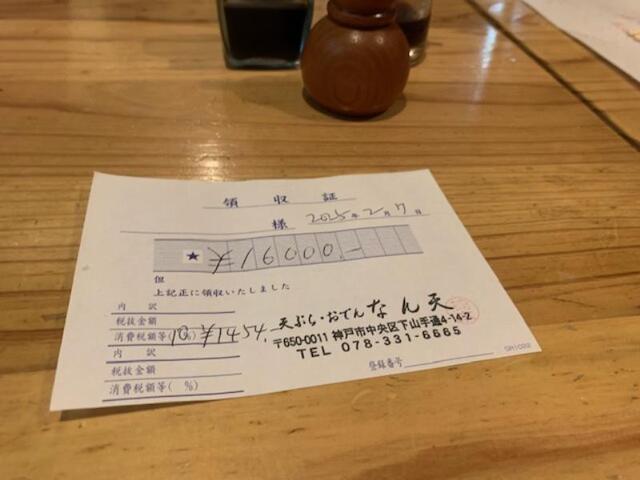 領収証
様 2025年2月7日
★ ¥16000-
但
上記正に領収いたしました
内 訳
税抜金額
消費税額等(10%) ¥1454
内 訳
税抜金額
消費税額等( %)
天ぷら・おでん なん天
〒650-0011 神戸市中央区下山手通4-14-2
TEL 078-331-6665
登録番号